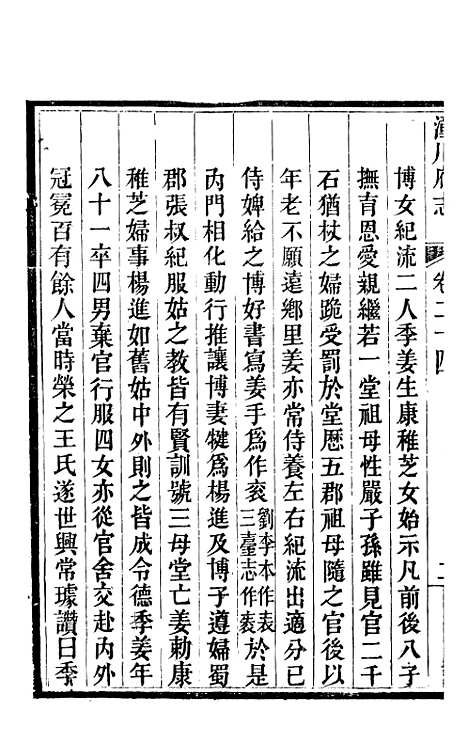 潼川府志
卷二十四
二
博女紀流二人季姜生康稚芝女始示凡前後八子
撫育恩愛親繼若一堂祖母性嚴子孫雖見官二千
石猶杖之婦跪受罰於堂歷五郡祖母隨之官後以
年老不願遠鄉里姜亦常侍養左右紀流出適分已
侍婢給之博好書寫姜手爲作袠劉李本作表三臺志作袠於是
內門相化動行推讓博妻犍爲楊進及博子遵婦蜀
郡張叔紀服姑之教皆有賢訓號三母堂亡姜勅康
稚芝婦事楊進如舊姑中外則之皆成令德季姜年
八十一卒四男棄官行服四女亦從官舍交赴內外
冠冕百有餘人當時榮之王氏遂世興常璩讚曰季